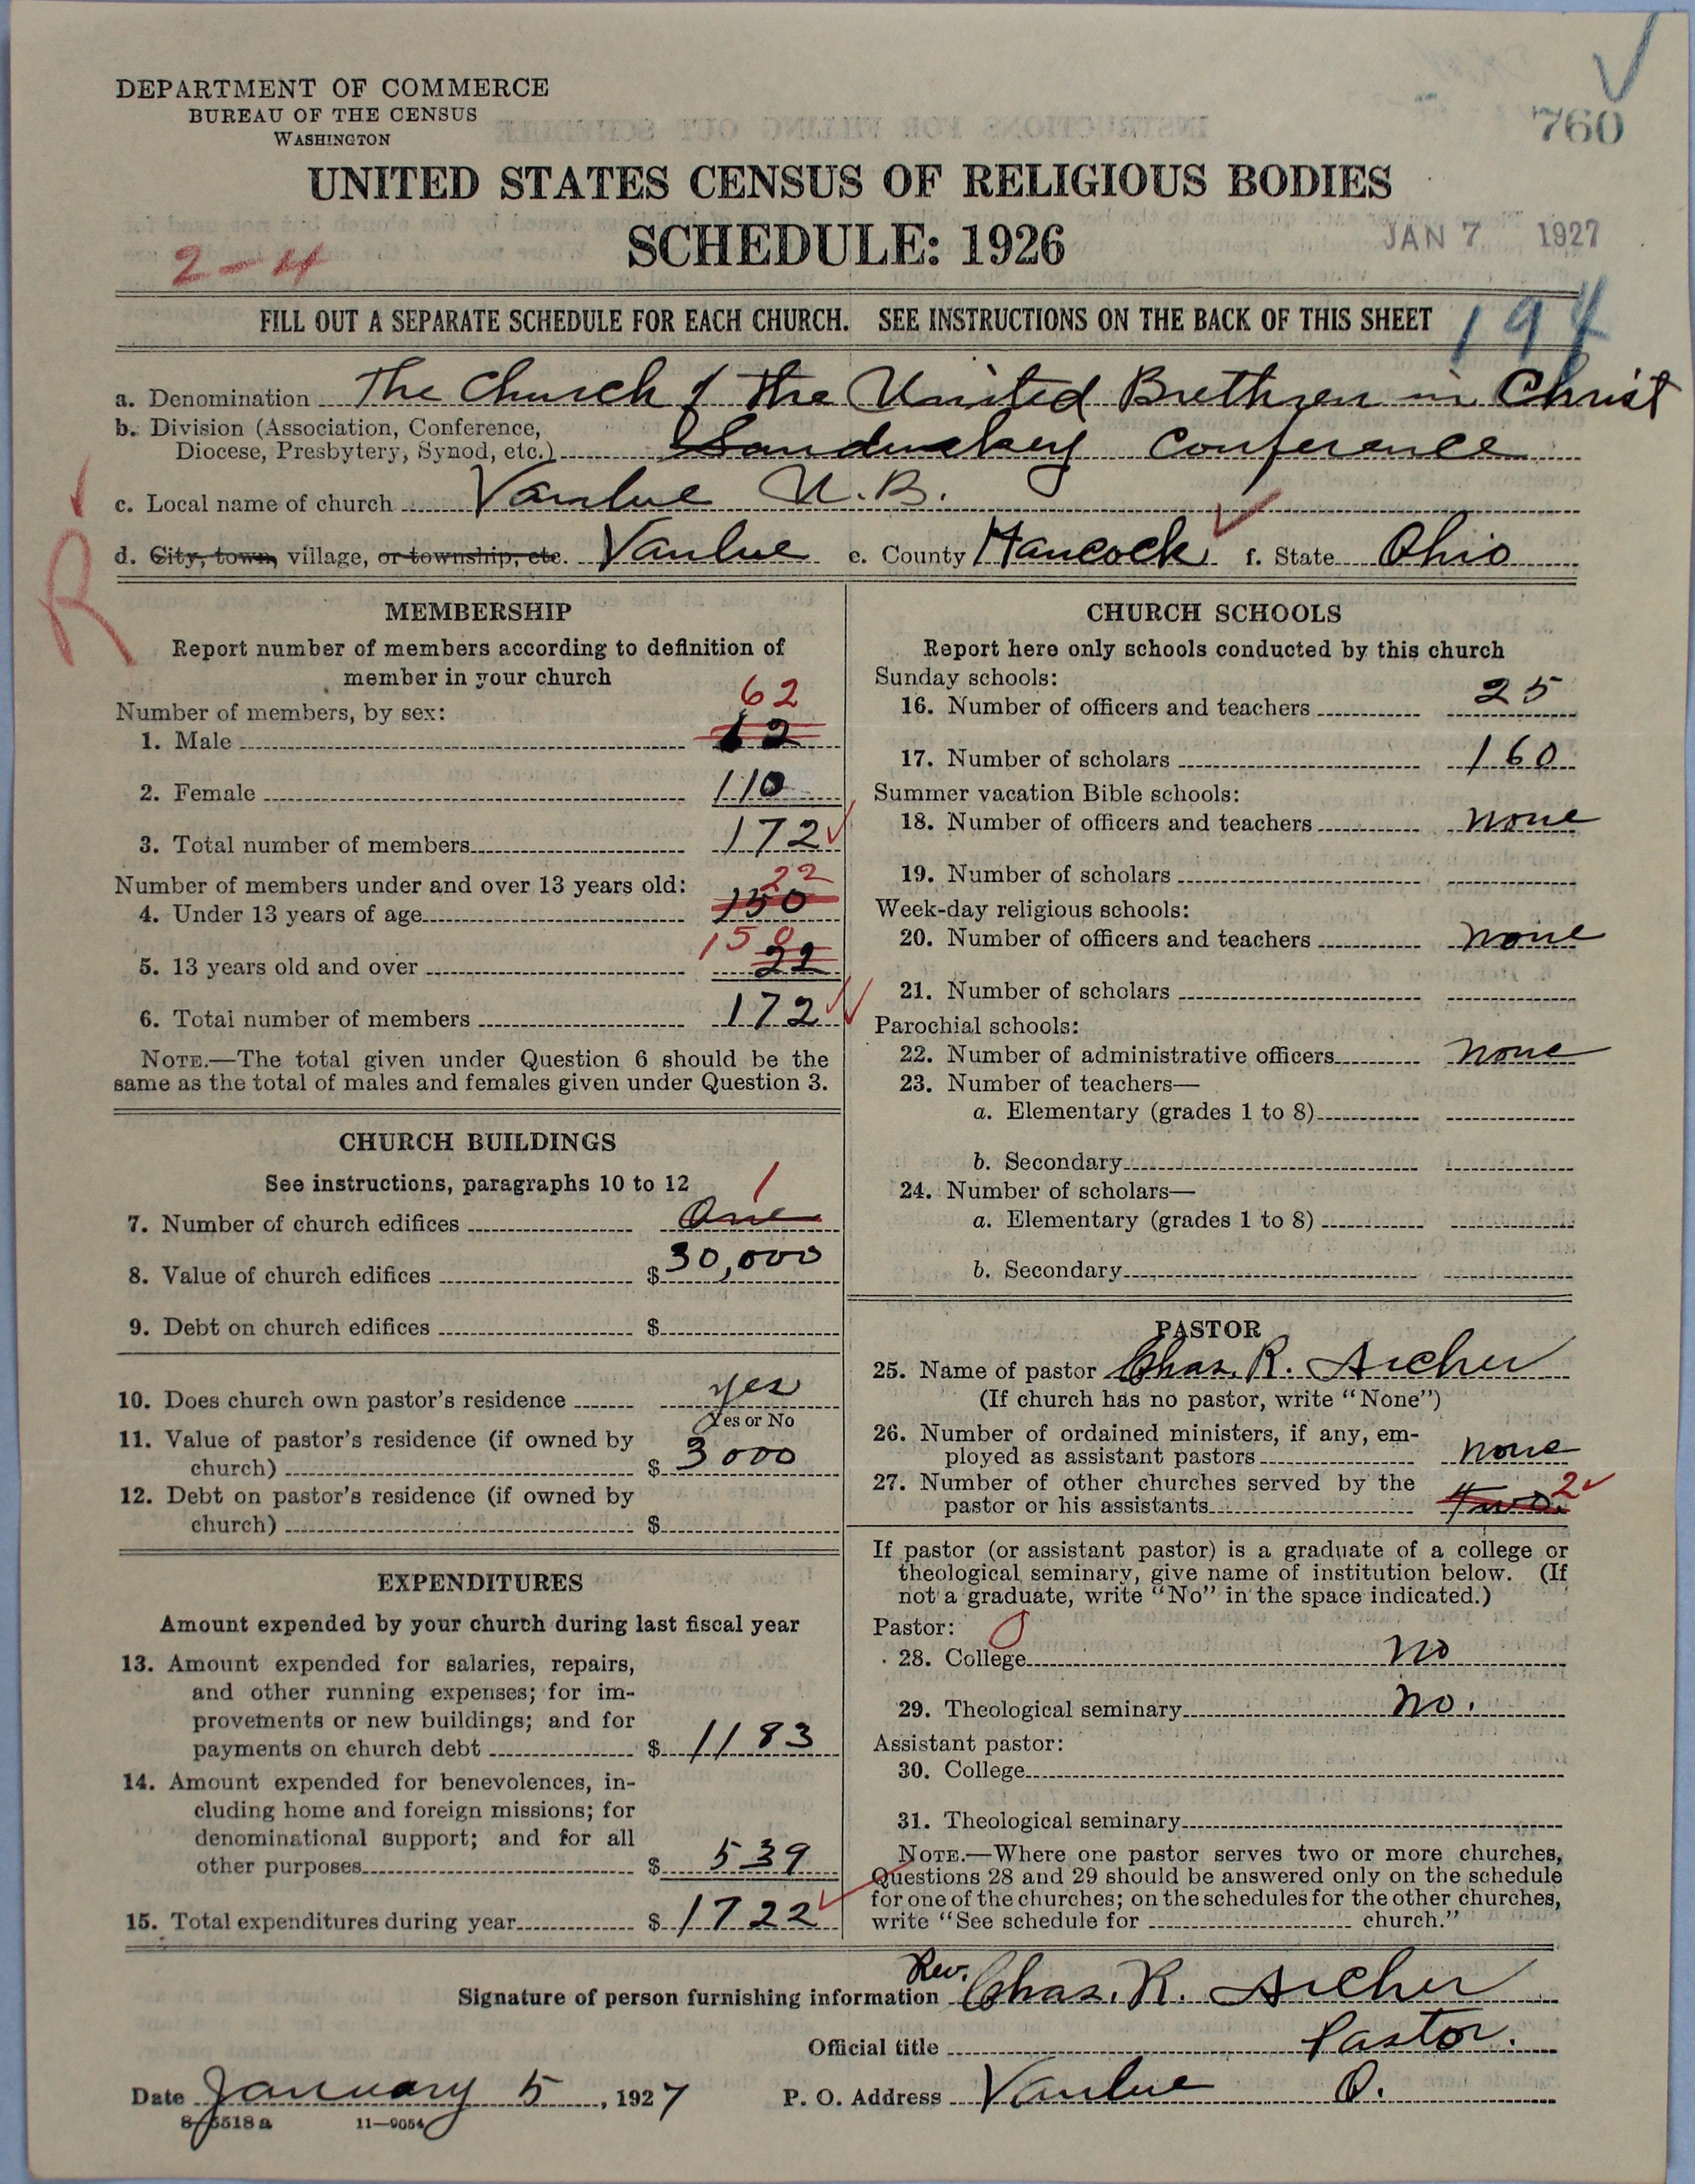 DEPARTMENT OF COMMERCE
BUREAU OF THE CENSUS
WASHINGTON
760
UNITED STATES CENSUS OF RELIGIOUS BODIES
SCHEDULE: 1926
JAN 7 1927
2-4
FILL OUT A SEPARATE SCHEDULE FOR EACH CHURCH. SEE INSTRUCTIONS ON THE BACK OF THIS SHEET
194
a. Denomination The Church of the United Brethren in Christ
b. Division (Association, Conference,
Diocese, Presbytery, Synod, etc.) Sandusky Conference
c. Local name of church Vanlue U.B.
d. City, town, village, or township, etc. Vanlue e. County Hancock f. State Ohio
R
MEMBERSHIP
Report number of members according to definition of
member in your church
Number of members, by sex:
62
1. Male 62
2. Female 110
3. Total number of members 172
Number of members under and over 13 years old:
22
4. Under 13 years of age 150
150
5. 13 years old and over 22
6. Total number of members 172
NOTE.—The total given under Question 6 should be the
same as the total of males and females given under Question 3.
CHURCH BUILDINGS
See instructions, paragraphs 10 to 12
1
7. Number of church edifices One
8. Value of church edifices $ 30,000
9. Debt on church edifices $
10. Does church own pastor's residence yes
Yes or No
11. Value of pastor's residence (if owned by
church) $ 3000
12. Debt on pastor's residence (if owned by
church) $
EXPENDITURES
Amount expended by your church during last fiscal year
13. Amount expended for salaries, repairs,
and other running expenses; for im-
provements or new buildings; and for
payments on church debt $ 1183
14. Amount expended for benevolences, in-
cluding home and foreign missions; for
denominational support; and for all
other purposes $ 539
15. Total expenditures during year $ 1722
CHURCH SCHOOLS
Report here only schools conducted by this church
Sunday schools:
16. Number of officers and teachers 25
17. Number of scholars 160
Summer vacation Bible schools:
18. Number of officers and teachers none
19. Number of scholars
Week-day religious schools:
20. Number of officers and teachers none
21. Number of scholars
Parochial schools:
22. Number of administrative officers none
23. Number of teachers—
a. Elementary (grades 1 to 8)
b. Secondary
24. Number of scholars—
a. Elementary (grades 1 to 8)
b. Secondary
PASTOR
25. Name of pastor Chas. R. Archer
(If church has no pastor, write "None")
26. Number of ordained ministers, if any, em-
ployed as assistant pastors none
27. Number of other churches served by the
pastor or his assistants two. 2
If pastor (or assistant pastor) is a graduate of a college or
theological seminary, give name of institution below. (If
not a graduate, write "No" in the space indicated.)
Pastor: 0
28. College no
29. Theological seminary no.
Assistant pastor:
30. College
31. Theological seminary
NOTE.—Where one pastor serves two or more churches,
Questions 28 and 29 should be answered only on the schedule
for one of the churches; on the schedules for the other churches,
write "See schedule for church."
Signature of person furnishing information Rev. Chas. R. Archer
Official title Pastor.
Date January 5, 1927 P. O. Address Vanlue O.
8-5518a 11-9054